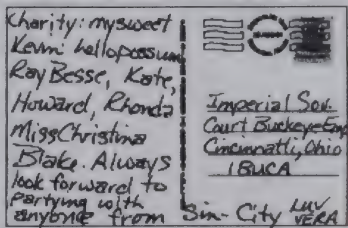 Charity: my sweet
Kevin hellopossum
Ray Besse, Kate,
Howard, Rhonda
Miss Christina
Blake. Always
look forward to
partying with
anyone from Sin-City LUV
VERA
Imperial Sov.
Court Buckeye Emp
Cincinnatti, Ohio
IBUCA